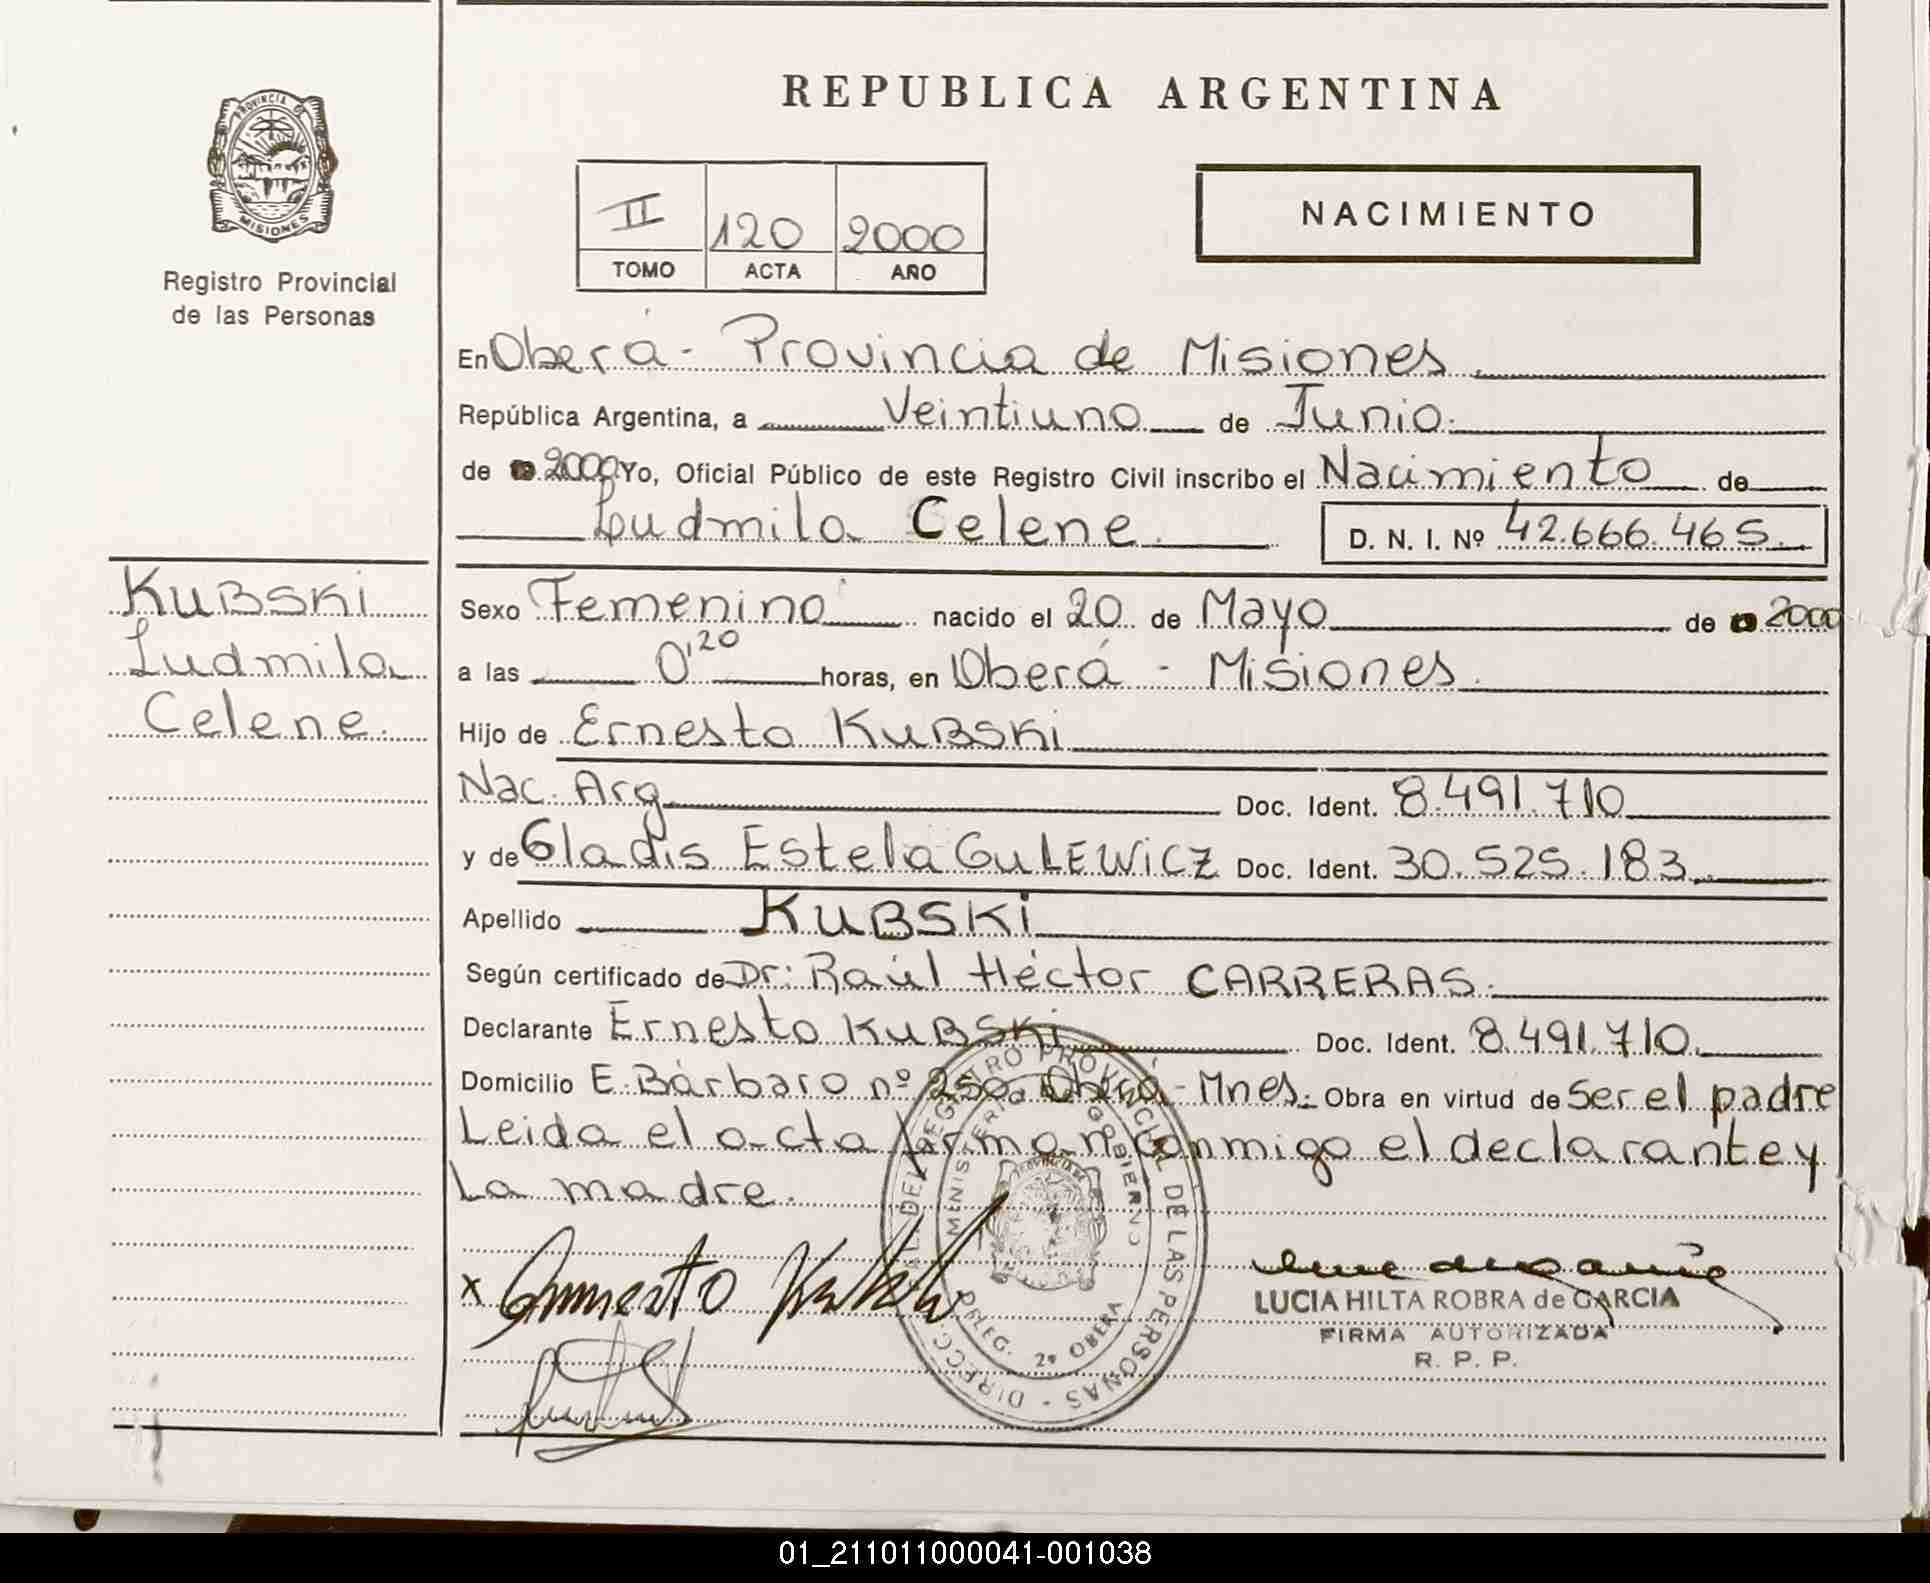 REPUBLICA ARGENTINA
PROVINCIA DE
MISIONES
Registro Provincial
de las Personas
II 120 2000
TOMO ACTA AÑO
NACIMIENTO
En Oberá - Provincia de Misiones
República Argentina, a Veintiuno de Junio.
de 2000 Yo, Oficial Público de este Registro Civil inscribo el Nacimiento de
Ludmila Celene. D. N. I. Nº 42.666.465.
Kubski
Ludmila
Celene.
Sexo Femenino nacido el 20 de Mayo de 2000
a las 0'20 horas, en Oberá - Misiones.
Hijo de Ernesto Kubski
Nac. Arg Doc. Ident. 8.491.710
y de Gladis Estela GULEWICZ Doc. Ident. 30.525.183
Apellido KUBSKI
Según certificado de Dr: Raúl Héctor CARRERAS.
Declarante Ernesto KUBSKI Doc. Ident. 8.491.710.
Domicilio E. Bárbaro nº 250 Oberá - Mnes. Obra en virtud de Ser el padre
Leida el acta firman conmigo el declarante y
La madre.
DIRECC. GRAL DEL REGISTRO PROVINCIAL DE LAS PERSONAS -
MINISTERIO GOBIERNO
DELEG. 2º OBERA
x Ernesto Kubski
LUCIA HILTA ROBRA de GARCIA
FIRMA AUTORIZADA
R. P. P.
01_211011000041-001038